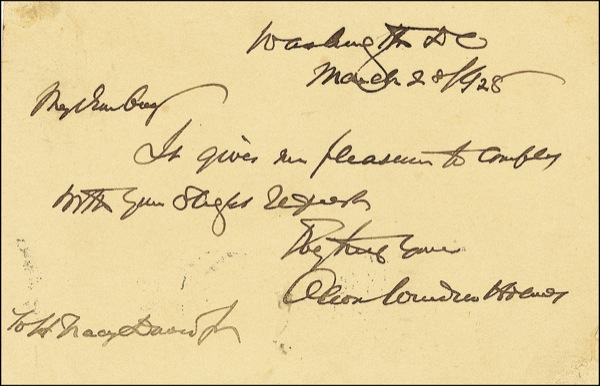 Washington DC
March 28/1925
My dear boy
It gives me pleasure to comply
with your slight request
Very truly yours
Oliver Wendell Holmes
To H Tracy